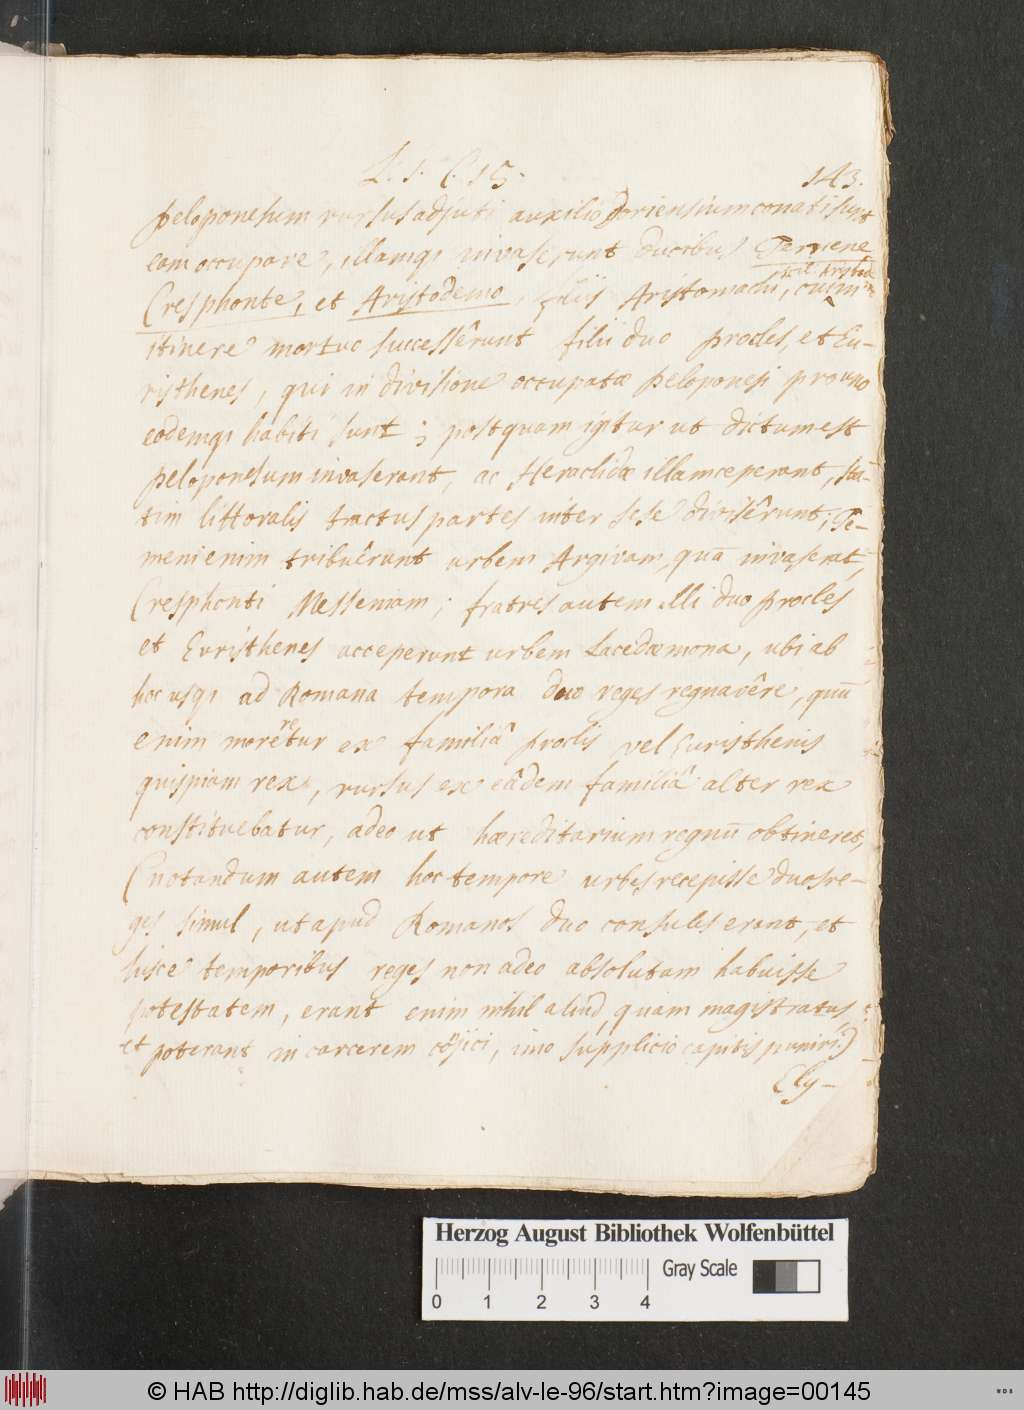 L. 1. C. 15.
143.
peloponesum rursus adjuti auxilio Doriensium conati sunt
eam occupare, illamqı invaserunt ducibus Temene
Cresphonte, et Aristodemo, filiis Aristomachi, cui in
scil. Aristod:
itinere mortuo successêrunt filii duo procles, et Eu-
risthenes, qui in divisione occupatæ peloponesi pro uno
eodemqı habiti sunt; postquam igitur ut dictum est
peloponesum invaserant, ac Heraclidæ illam ceperant, sta-
tim littoralis tractus partes inter sese divisêrunt; Te-
meni enim tribuêrunt urbem Argivam, quā invaserat,
Cresphonti Messeniam; fratres autem illi duo procles
et Euristhenes acceperunt urbem Lacedæmona, ubi ab
hoc usqı ad Romana tempora duo reges regnavêre, quū
enim moreretur ex familiâ proclis vel Euristhenis
quispiam rex, rursus ex eâdem familiâ alter rex
constituebatur, adeo ut hæreditarium regnū obtineret,
(notandum autem hoc tempore urbes recepisse duos re-
ges simul, ut apud Romanos duo consules erant, et
hisce temporibus reges non adeo absolutam habuisse
potestatem, erant enim nihil aliud quam magistratus
et poterant in carcerem cōjici, imo supplicio capitis puniri.)
Ely-
Herzog August Bibliothek Wolfenbüttel
Gray Scale
0 1 2 3 4
© HAB http://diglib.hab.de/mss/alv-le-96/start.htm?image=00145
WDB